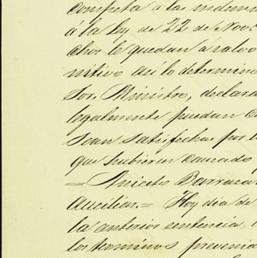 á la ley de 22 de Nov
ahor le quedan a salvo
nitivo así lo determin
Sor. Ministro, declar
legalmente puedan
sean satisfechas por
que hubieren causado
= Aniceto Barraca
Auxiliar. = Hoy dia de
la anterior sentencia,
los terminos preveni